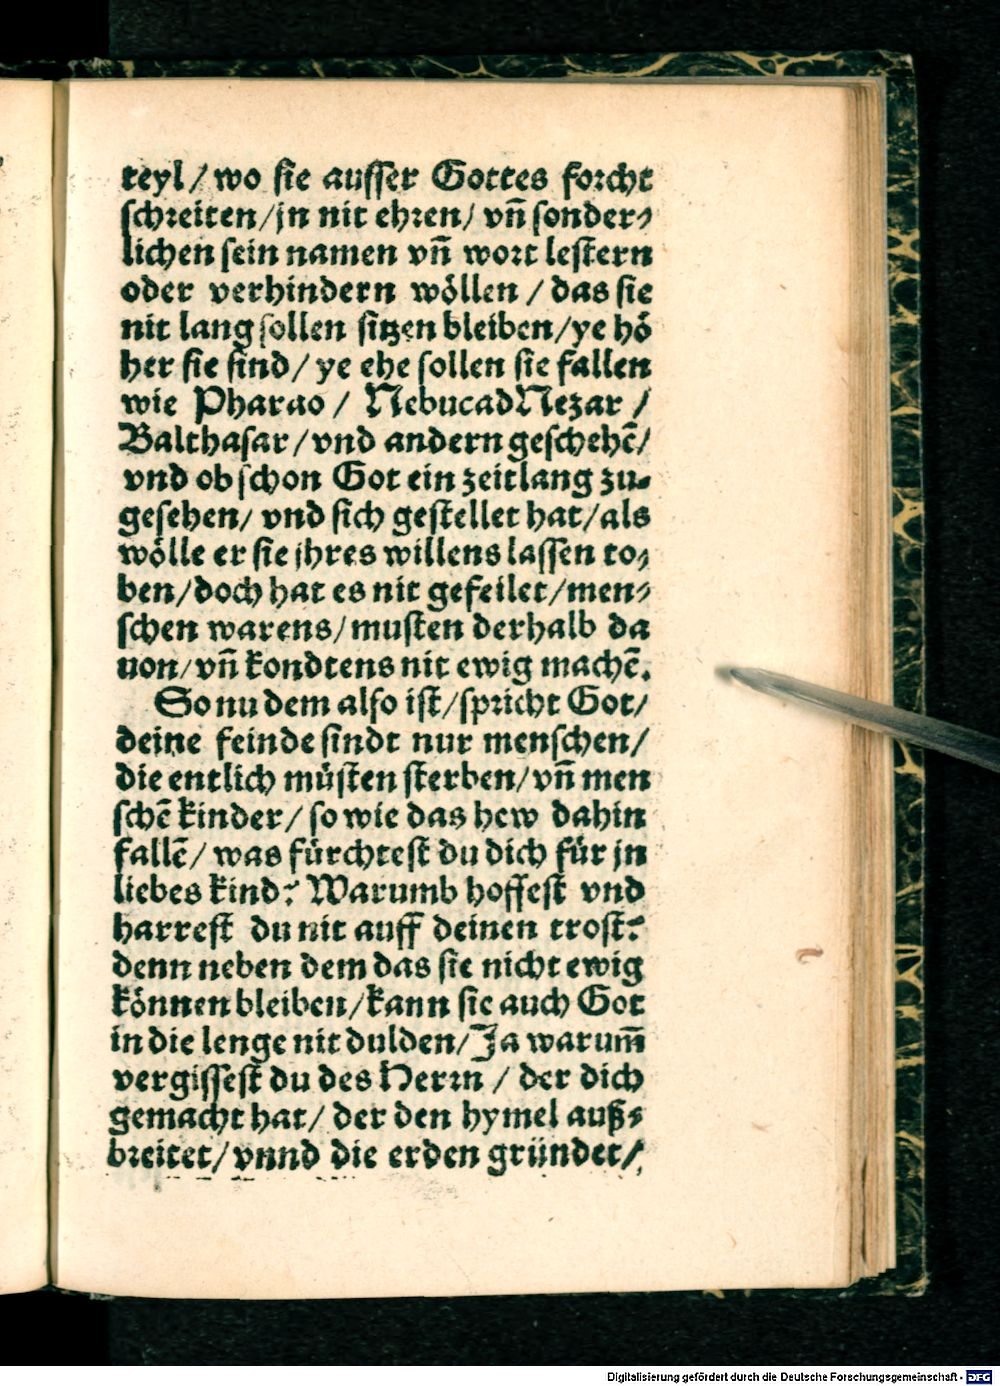 teyl/ wo sie ausser Gottes forcht
schreiten/ jn nit ehren/ vñ sonder⸗
lichen sein namen vñ wort lestern
oder verhindern wöllen / das sie
nit lang sollen sitzen bleiben/ ye hö
her sie sind/ ye ehe sollen sie fallen
wie Pharao / NebucadNezar /
Balthasar/ vnd andern geschehẽ/
vnd ob schon Got ein zeitlang zu⸗
gesehen/ vnd sich gestellet hat/ als
wölle er sie jhres willens lassen to⸗
ben/ doch hat es nit gefeilet/ men⸗
schen warens/ musten derhalb da
uon/ vñ kondtens nit ewig machẽ.
So nu dem also ist/ spricht Got/
deine feinde sindt nur menschen/
die entlich müsten sterben/ vñ men
schẽ kinder/ so wie das hew dahin
fallẽ/ was fürchtest du dich für jn
liebes kind? Warumb hoffest vnd
harrest du nit auff deinen trost?
denn neben dem das sie nicht ewig
können bleiben/ kann sie auch Got
in die lenge nit dulden/ Ja warum̃
vergissest du des Herrn / der dich
gemacht hat/ der den hymel auß⸗
breitet/ vnnd die erden gründet/
Digitalisierung gefördert durch die Deutsche Forschungsgemeinschaft - DFG